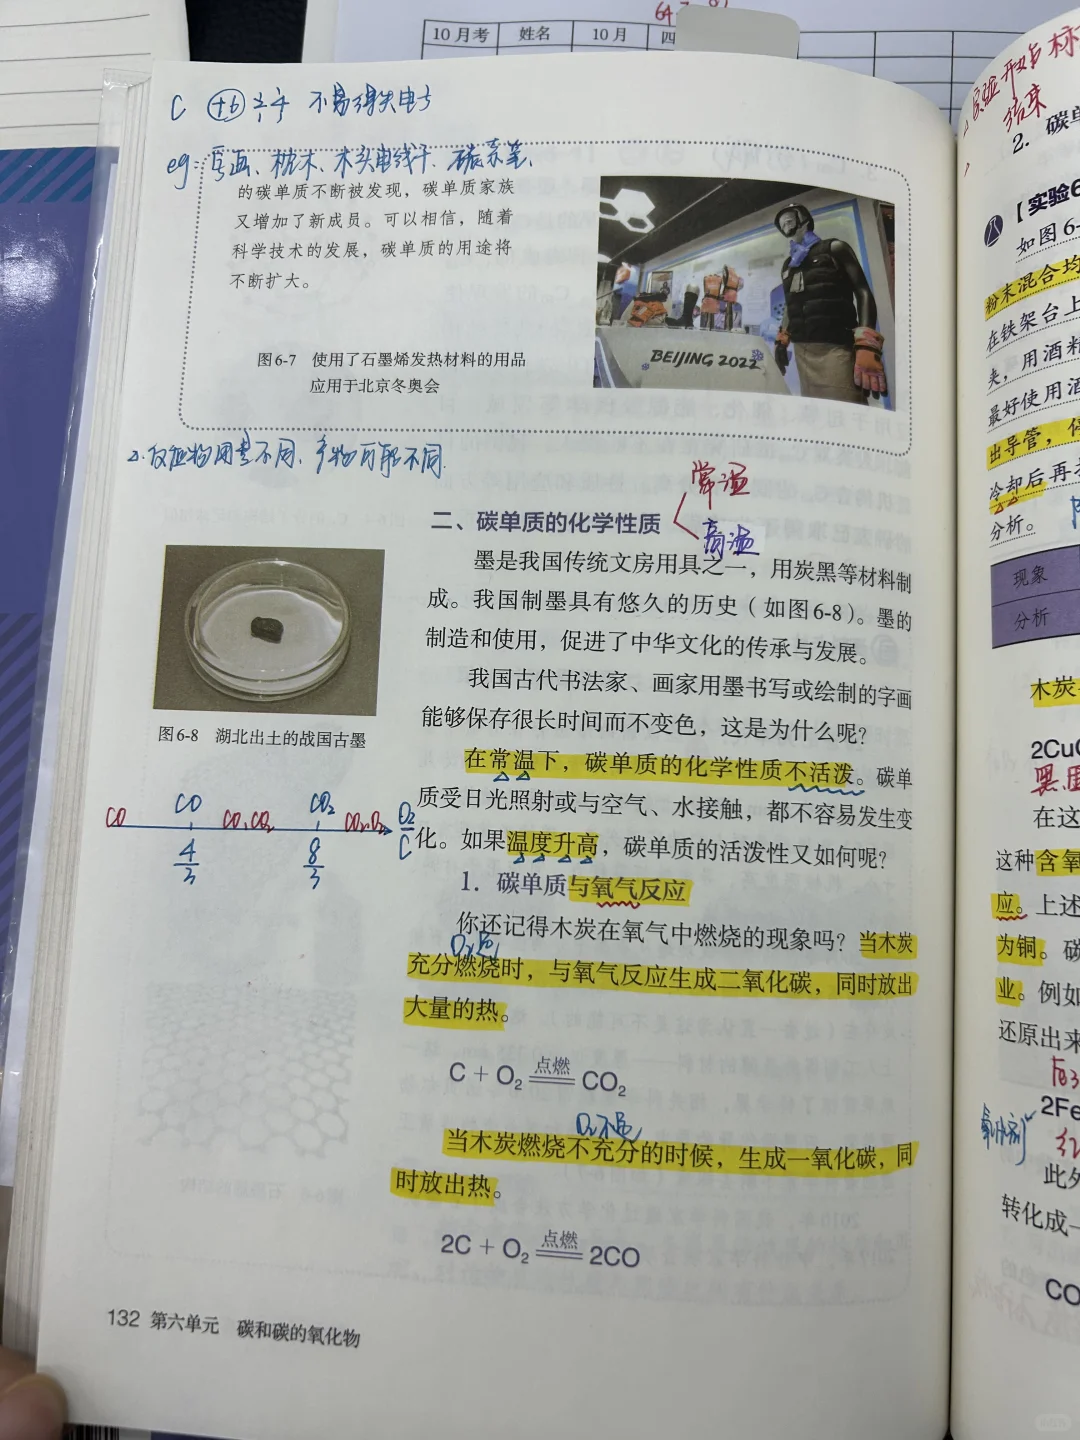 10月考 姓名 10月 四
C +6 不易得失电子
eg: 字画、枕木、木头电线杆、碳素笔、
的碳单质不断被发现，碳单质家族
又增加了新成员。可以相信，随着
科学技术的发展，碳单质的用途将
不断扩大。
BEIJING 2022
图6-7 使用了石墨烯发热材料的用品
应用于北京冬奥会
2.反应物用量不同、产物可能不同.
常温
二、碳单质的化学性质
高温
墨是我国传统文房用具之一，用炭黑等材料制
成。我国制墨具有悠久的历史（如图6-8）。墨的
制造和使用，促进了中华文化的传承与发展。
我国古代书法家、画家用墨书写或绘制的字画
能够保存很长时间而不变色，这是为什么呢？
图6-8 湖北出土的战国古墨
在常温下，碳单质的化学性质不活泼。碳单
质受日光照射或与空气、水接触，都不容易发生变
化。如果温度升高，碳单质的活泼性又如何呢？
CO CO CO,CO₂ CO₂ CO₂,O₂ O₂/C
4/3 8/3
1. 碳单质与氧气反应
你还记得木炭在氧气中燃烧的现象吗？当木炭
O₂足
充分燃烧时，与氧气反应生成二氧化碳，同时放出
大量的热。
C + O₂ 点燃 CO₂
O₂不足
当木炭燃烧不充分的时候，生成一氧化碳，同
时放出热。
2C + O₂ 点燃 2CO
132 第六单元 碳和碳的氧化物
实验开始
结束
2. 碳单
【实验6
如图6-
粉末混合均
在铁架台上
夹，用酒精
最好使用酒
出导管，
冷却后再
分析。
现象
分析
木炭
2CuO
黑
在这
这种含氧
应。上述
为铜。碳
业。例如
还原出来
2Fe
红
此外
转化成一
CO